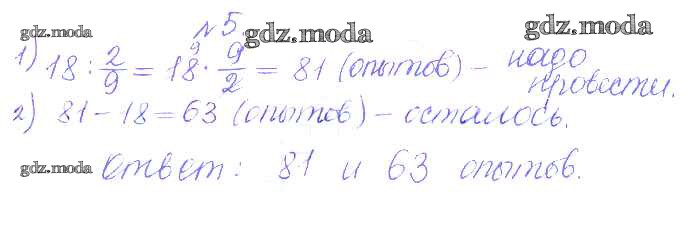 №5.
gdz.moda gdz.moda gdz.moda
1) 18 : 2/9 = 18 · 9/2 = 81 (опытов) – надо
9
провести.
2) 81 – 18 = 63 (опытов) – осталось.
gdz.moda gdz.moda
Ответ: 81 и 63 опытов.